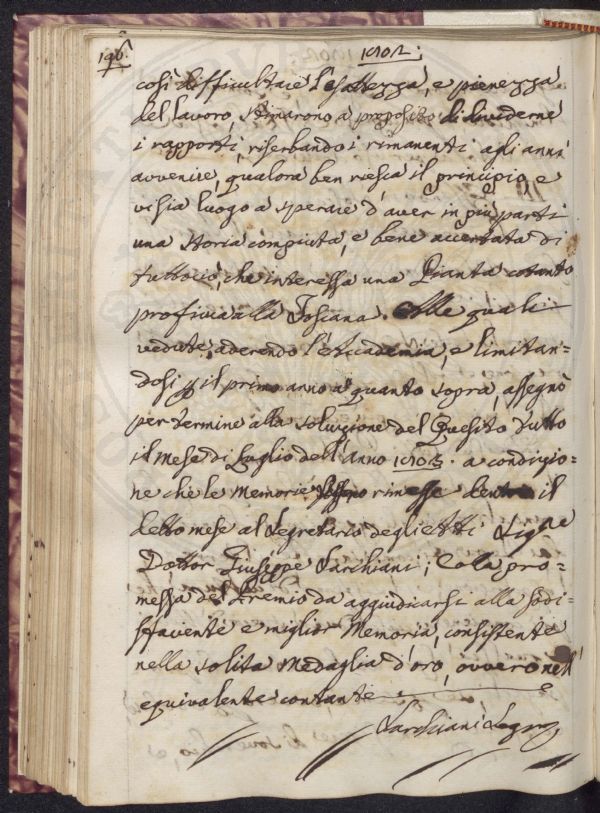 196.
così difficultare l'esattezza, e pienezza
del lavoro, stimarono a proposito di dividerne
i rapporti, riserbando i rimanenti agli anni
avvenire, qualora ben riesca il principio, e
vi sia luogo a sperare d'aver in più parti
una storia compiuta, e bene accertata di
tuttociò, che interessa una Pianta cotanto
proficua alla Toscana. Alle quali
vedute, aderendo l'Accademia, e limitan=
dosi p il primo anno a quanto sopra, assegnò
per termine alla soluzione del Quesito tutto
il mese di Luglio dell'anno a condizio=
ne che le Memorie rimesse dentro il
detto mese al Segretario degli Atti Sig.re
Dottor Giuseppe Sarchiani; Colla pro=
messa del Premio da aggiudicarsi alla sodi=
sfaciente e miglior Memoria, consistente
nella solita Medaglia d'oro, ovvero nell'
equivalente contante
Sarchiani Segr.